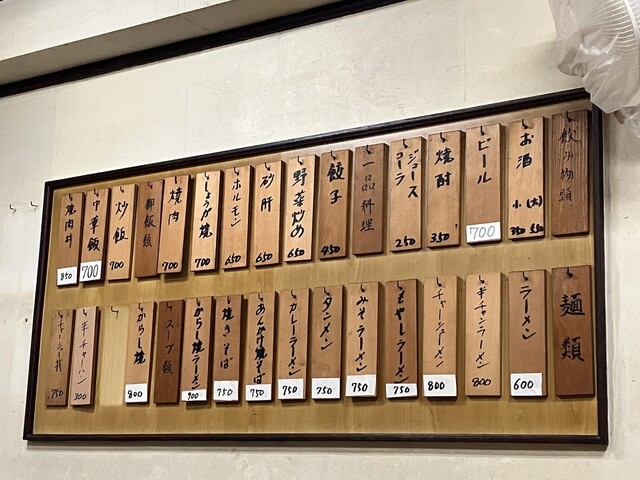 飲み物類
お酒 小 350 (大) 550
ビール 700
焼酎 350
ジュース コーラ 250
一品料理
餃子 450
野菜炒め 650
砂肝 650
ホルモン 650
しょうが焼 700
焼肉 700
御飯類
炒飯 700
中華飯 700
焼肉丼 850
麺類
ラーメン 600
半チャンラーメン 800
チャーシューメン 800
もやしラーメン 750
みそラーメン 750
タンメン 750
カレーラーメン 750
あんかけ焼そば 750
焼きそば 750
からし焼ラーメン 900
スープ類
からし焼 800
半チャーハン 300
チャーシュー丼 750